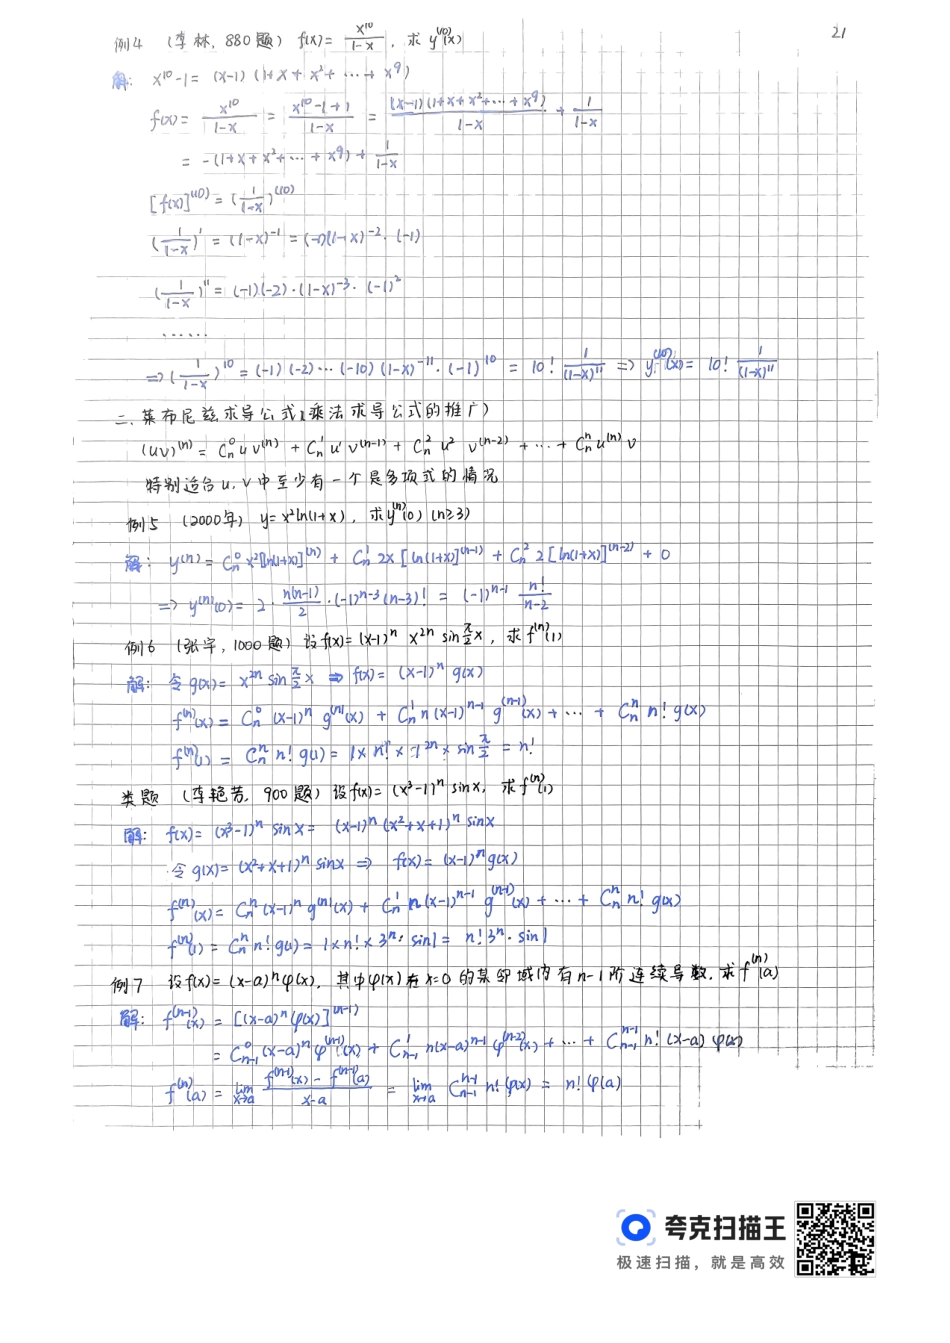 21
例4 (李林, 880题) f(x)= x^10/(1-x), 求 y^(10)(x)
解: x^10-1= (x-1)(1+x+x²+…+x^9)
f(x)= x^10/(1-x) = (x^10-1+1)/(1-x) = (x-1)(1+x+x²+…+x^9)/(1-x) + 1/(1-x)
= -(1+x+x²+…+x^9)+ 1/(1-x)
[f(x)]^(10) = (1/(1-x))^(10)
(1/(1-x))' = (1-x)^-1 = (-1)(1-x)^-2·(-1)
(1/(1-x))'' = (-1)(-2)·(1-x)^-3·(-1)²
……
⇒ (1/(1-x))^10 = (-1)(-2)…(-10)(1-x)^-11·(-1)^10 = 10! 1/(1-x)^11 ⇒ y^(10)(x)= 10! 1/(1-x)^11
二、莱布尼兹求导公式(乘法求导公式的推广)
(uv)^(n) = C_n^0 u v^(n) + C_n^1 u' v^(n-1) + C_n^2 u² v^(n-2) + … + C_n^n u^(n) v
特别适合u,v中至少有一个是多项式的情况
例5 (2000年) y= x²ln(1+x), 求y^(n)(0) (n≥3)
解: y^(n) = C_n^0 x²[ln(1+x)]^(n) + C_n^1 2x[ln(1+x)]^(n-1) + C_n^2 2[ln(1+x)]^(n-2) + 0
⇒ y^(n)(0)= 2· n(n-1)/2 ·(-1)^n-3 (n-3)! = (-1)^n-1 n!/(n-2)
例6 (张宇, 1000题) 设f(x)= (x-1)^n x^2n sin π/2 x, 求f^(n)(1)
解: 令g(x)= x^2n sin π/2 x ⇒ f(x)= (x-1)^n g(x)
f^(n)(x) = C_n^0 (x-1)^n g^(n)(x) + C_n^1 n(x-1)^n-1 g^(n-1)(x)+ … + C_n^n n! g(x)
f^(n)(1) = C_n^n n! g(1) = 1×n!×1^2n × sin π/2 = n!
类题 (李艳芳, 900题) 设f(x)= (x³-1)^n sinx, 求f^(n)(1)
解: f(x)= (x³-1)^n sinx = (x-1)^n (x²+x+1)^n sinx
令g(x)= (x²+x+1)^n sinx ⇒ f(x)= (x-1)^n g(x)
f^(n)(x)= C_n^n (x-1)^n g^(n)(x) + C_n^1 n(x-1)^n-1 g^(n-1)(x) + … + C_n^n n! g(x)
f^(n)(1) = C_n^n n! g(1) = 1×n!×3^n· sin1 = n!3^n·sin1
例7 设f(x)= (x-a)^n φ(x), 其中φ(x)在x=0的某邻域内有n-1阶连续导数, 求f^(n)(a)
解: f^(n-1)(x) = [(x-a)^n φ(x)]^(n-1)
= C_n-1^0 (x-a)^n φ^(n-1)(x) + C_n-1^1 n(x-a)^n-1 φ^(n-2)(x) + … + C_n-1^n-1 n! (x-a) φ(x)
f^(n)(a) = lim x→a (f^(n-1)(x) - f^(n-1)(a))/(x-a) = lim x→a C_n-1^n-1 n! φ(x) = n! φ(a)
夸克扫描王
极速扫描，就是高效